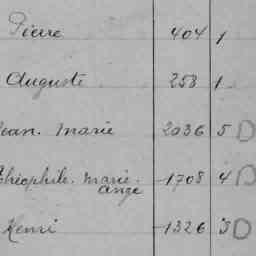 Pierre 404 1
Auguste 258 1
Jean. Marie 2036 5 D
Théophile. Marie. 1708 4 D
Ange
Henri 1326 3 D